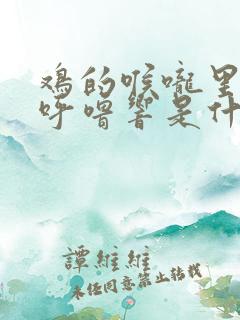 鸡的喉咙里
呼噜响是什
譚維維
未经同意禁止转载